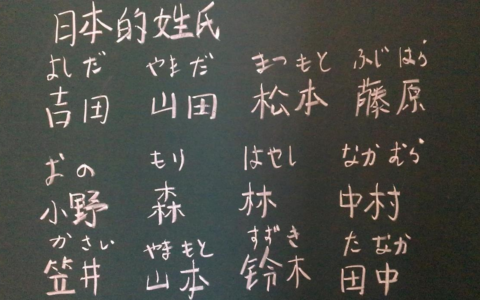 日本的姓氏
よしだ やまだ まつもと ふじはら
吉田 山田 松本 藤原
おの もり はやし なかむら
小野 森 林 中村
かさい やまもと すずき たなか
笠井 山本 鈴木 田中